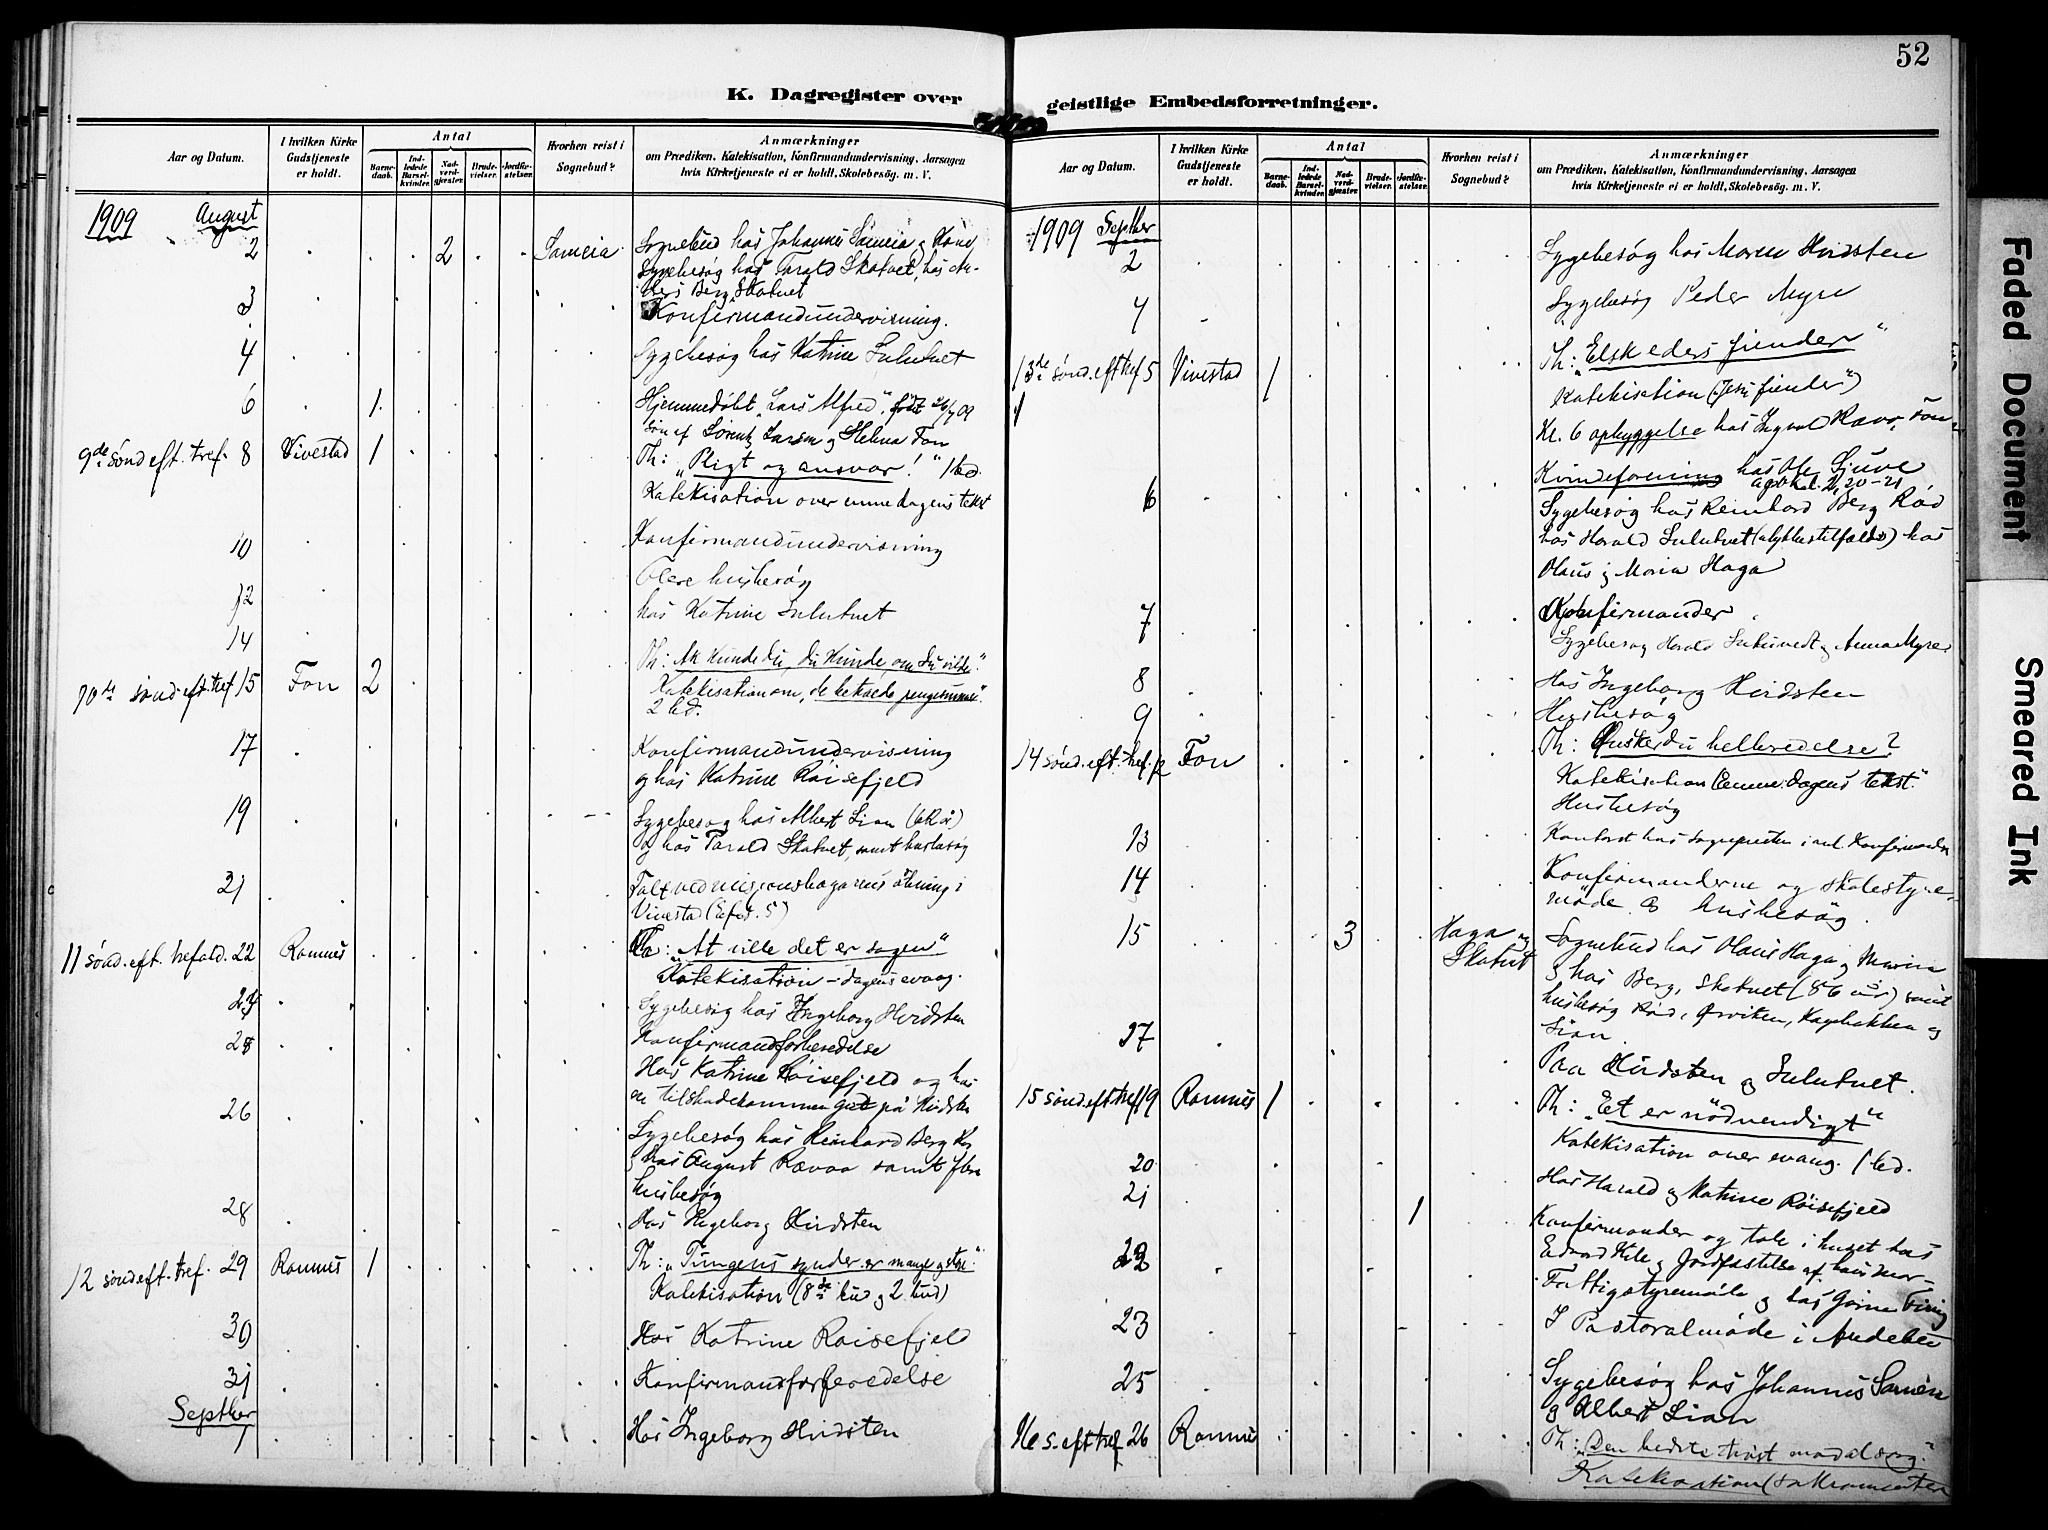 52
K. Dagregister over
geistlige Embedsforretninger.
Aar og Datum.
I hvilken Kirke Gudstjeneste er holdt.
Antal
Barne-daab.
Ind-ledede Barsel-kvinder.
Nad-verd-gjæster.
Brude-vielser.
Jordfæ-stelser.
Hvorhen reist i Sognebud?
Anmærkninger
om Prædiken, Katekisation, Konfirmandundervisning, Aarsagen
hvis Kirketjeneste ei er holdt, Skolebesøg. m. V.
1909 August
2 2 Sameia Sognebud hos Johannes Sameia og Kone
Sygebesøg hos Tarald Skatvet, hos
Berg, Skatvet
3 Konfirmandundervisning.
4 Sygebesøg hos Katrine Sulutvet
6 1 Hjemmedøbt "Lars Alfred", født 26/7 09
søn af Sørents Larsen og Helena Fon
9de sønd eft. tref. 8 Vivestad 1 Th: "Pligt og ansvar!" 1 bd.
Katekisation over emne dagens tekst
10 Konfirmandundervisning
12 Flere husbesøg
14 hos Katrine Sulutvet
10de sønd. eft. tref 15 Fon 2 Th: "Ak kunde du, du kunde om du vilde".
Katekisation om "de betroede pengesummer".
2 bd.
17 Konfirmandundervisning
og hos Katrine Røisefjeld
19 Sygebesøg hos Albert Lian
og hos Tarald Skatvet, samt husbesøg
21 Tale ved missionshagarens åbning i
Vivestad
11 sønd. eft. trefold. 22 Ramnes Th: "At ville det er sagen"
Katekisation – dagens evang.
24 Sygebesøg hos Ingeborg Hvidsten
25 Konfirmandforberedelse
Hos Katrine Røisefjeld og hos
en tilskadekommen gut på Hvidsten
26 Sygebesøg hos Reinhard Berg
& hos August Ravaa samt flere
husbesøg
28 Hos Ingeborg Hvidsten
12 sønd eft. tref. 29 Ramnes 1 Th: "Tungens synder er mange og store".
Katekisation (8de bud og 2. bud)
30 Hos Katrine Røisefjeld
31 Konfirmandforberedelse
Septber
1 Hos Ingeborg Hvidsten
Aar og Datum.
I hvilken Kirke Gudstjeneste er holdt.
Antal
Barne-daab.
Ind-ledede Barsel-kvinder.
Nad-verd-gjæster.
Brude-vielser.
Jordfæ-stelser.
Hvorhen reist i Sognebud?
Anmærkninger
om Prædiken, Katekisation, Konfirmandundervisning, Aarsagen
hvis Kirketjeneste ei er holdt, Skolebesøg. m. V.
1909 Septber
2 Sygebesøg hos Maren Hvidsten
4 Sygebesøg Peder Myre
13de sønd. eft tref 5 Vivestad 1 Th: "Elsk eders fiender"
Katekisation (Jesu fiender")
Kl. 6 opbyggelse hos Ingvald Ravø, Fon
Kvindeforening hos Ole Gjuve
20-21
6 Sygebesøg hos Reinhard Berg Rød
hos Harald Sulutvet (ulykkestilfælde) hos
Olaus & Maria Haga
7 Konfirmander
Sygebesøg Harald Sulutvedt og Anna Myre
8 Hos Ingeborg Hvidsten
9 Husbesøg
14 sønd. eft. tref. 12 Fon Th: Ønsker du helbredelse?
Katekisation (emne: dagens tekst."
Husbesøg
13 Konferert hos sognepresten i anl. Konfirmander
14 Konfirmanderne og skolestyre-
møde & husbesøg.
15 3 Haga og Skatvet Sognebud hos Olaus Haga og Maria
& hos Berg, Skatvet (86 år) samt
husbesøg Rød, Ørviken, og
Lian.
17 Paa Hvidsten og Sulutvet.
15 sønd eft tref 19 Ramnes 1 Th: "Et er nødvendigt"
Katekisation over evang. 1 bd.
20 Hos Harald og Katrine Røisefjeld
21 1 Konfirmander og tale i huset hos
Edvard og Jordfæstelse af hans mor
22 Fattigstyremøde og hos
23 I Pastoralmøde i Andebu
25 Sygebesøg hos Johannes Sameia
& Albert Lian
16 s. eft tref 26 Ramnes Th: "Den bedste trøst mod al sorg".
Katekisation (sakramenter
Faded Document
Smeared Ink